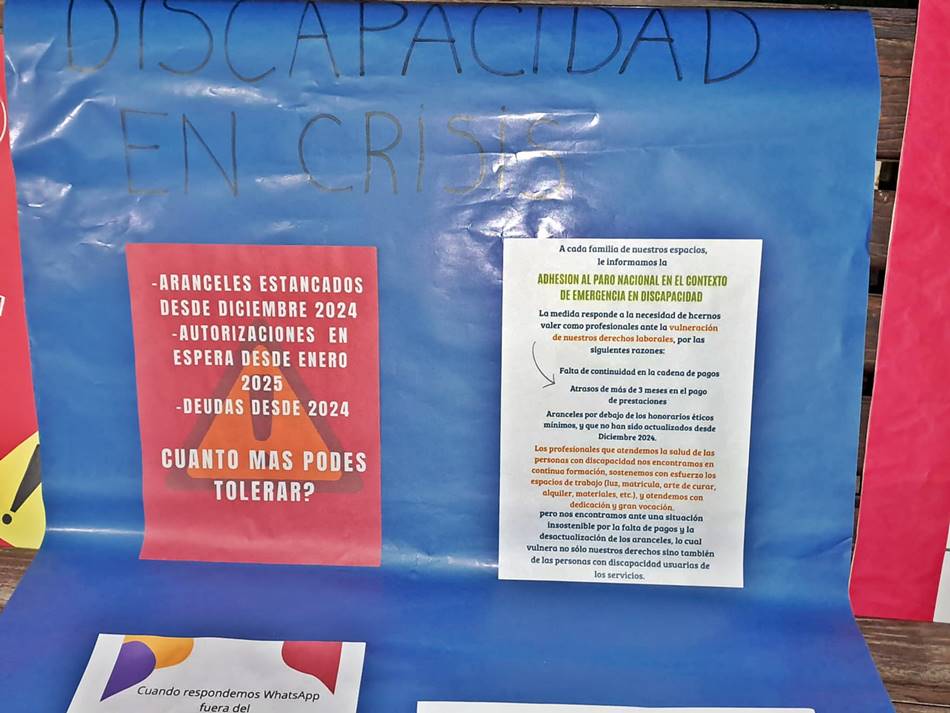 DISCAPACIDAD
EN CRISIS
-ARANCELES ESTANCADOS
DESDE DICIEMBRE 2024
-AUTORIZACIONES EN
ESPERA DESDE ENERO
2025
-DEUDAS DESDE 2024
CUANTO MAS PODES
TOLERAR?
A cada familia de nuestros espacios,
le informamos la
ADHESION AL PARO NACIONAL EN EL CONTEXTO
DE EMERGENCIA EN DISCAPACIDAD
La medida responde a la necesidad de hcernos
valer como profesionales ante la vulneración
de nuestros derechos laborales, por las
siguientes razones:
Falta de continuidad en la cadena de pagos
Atrasos de más de 3 meses en el pago
de prestaciones
Aranceles por debajo de los honorarios éticos
mínimos, y que no han sido actualizados desde
Diciembre 2024.
Los profesionales que atendemos la salud de las
personas con discapacidad nos encontramos en
continua formación, sostenemos con esfuerzo los
espacios de trabajo (luz, matricula, arte de curar,
alquiler, materiales, etc.), y atendemos con
dedicación y gran vocación.
pero nos encontramos ante una situación
insostenible por la falta de pagos y la
desactualización de los aranceles, lo cual
vulnera no sólo nuestros derechos sino también
de las personas con discapacidad usuarias de
los servicios.
Cuando respondemos WhatsApp
fuera del